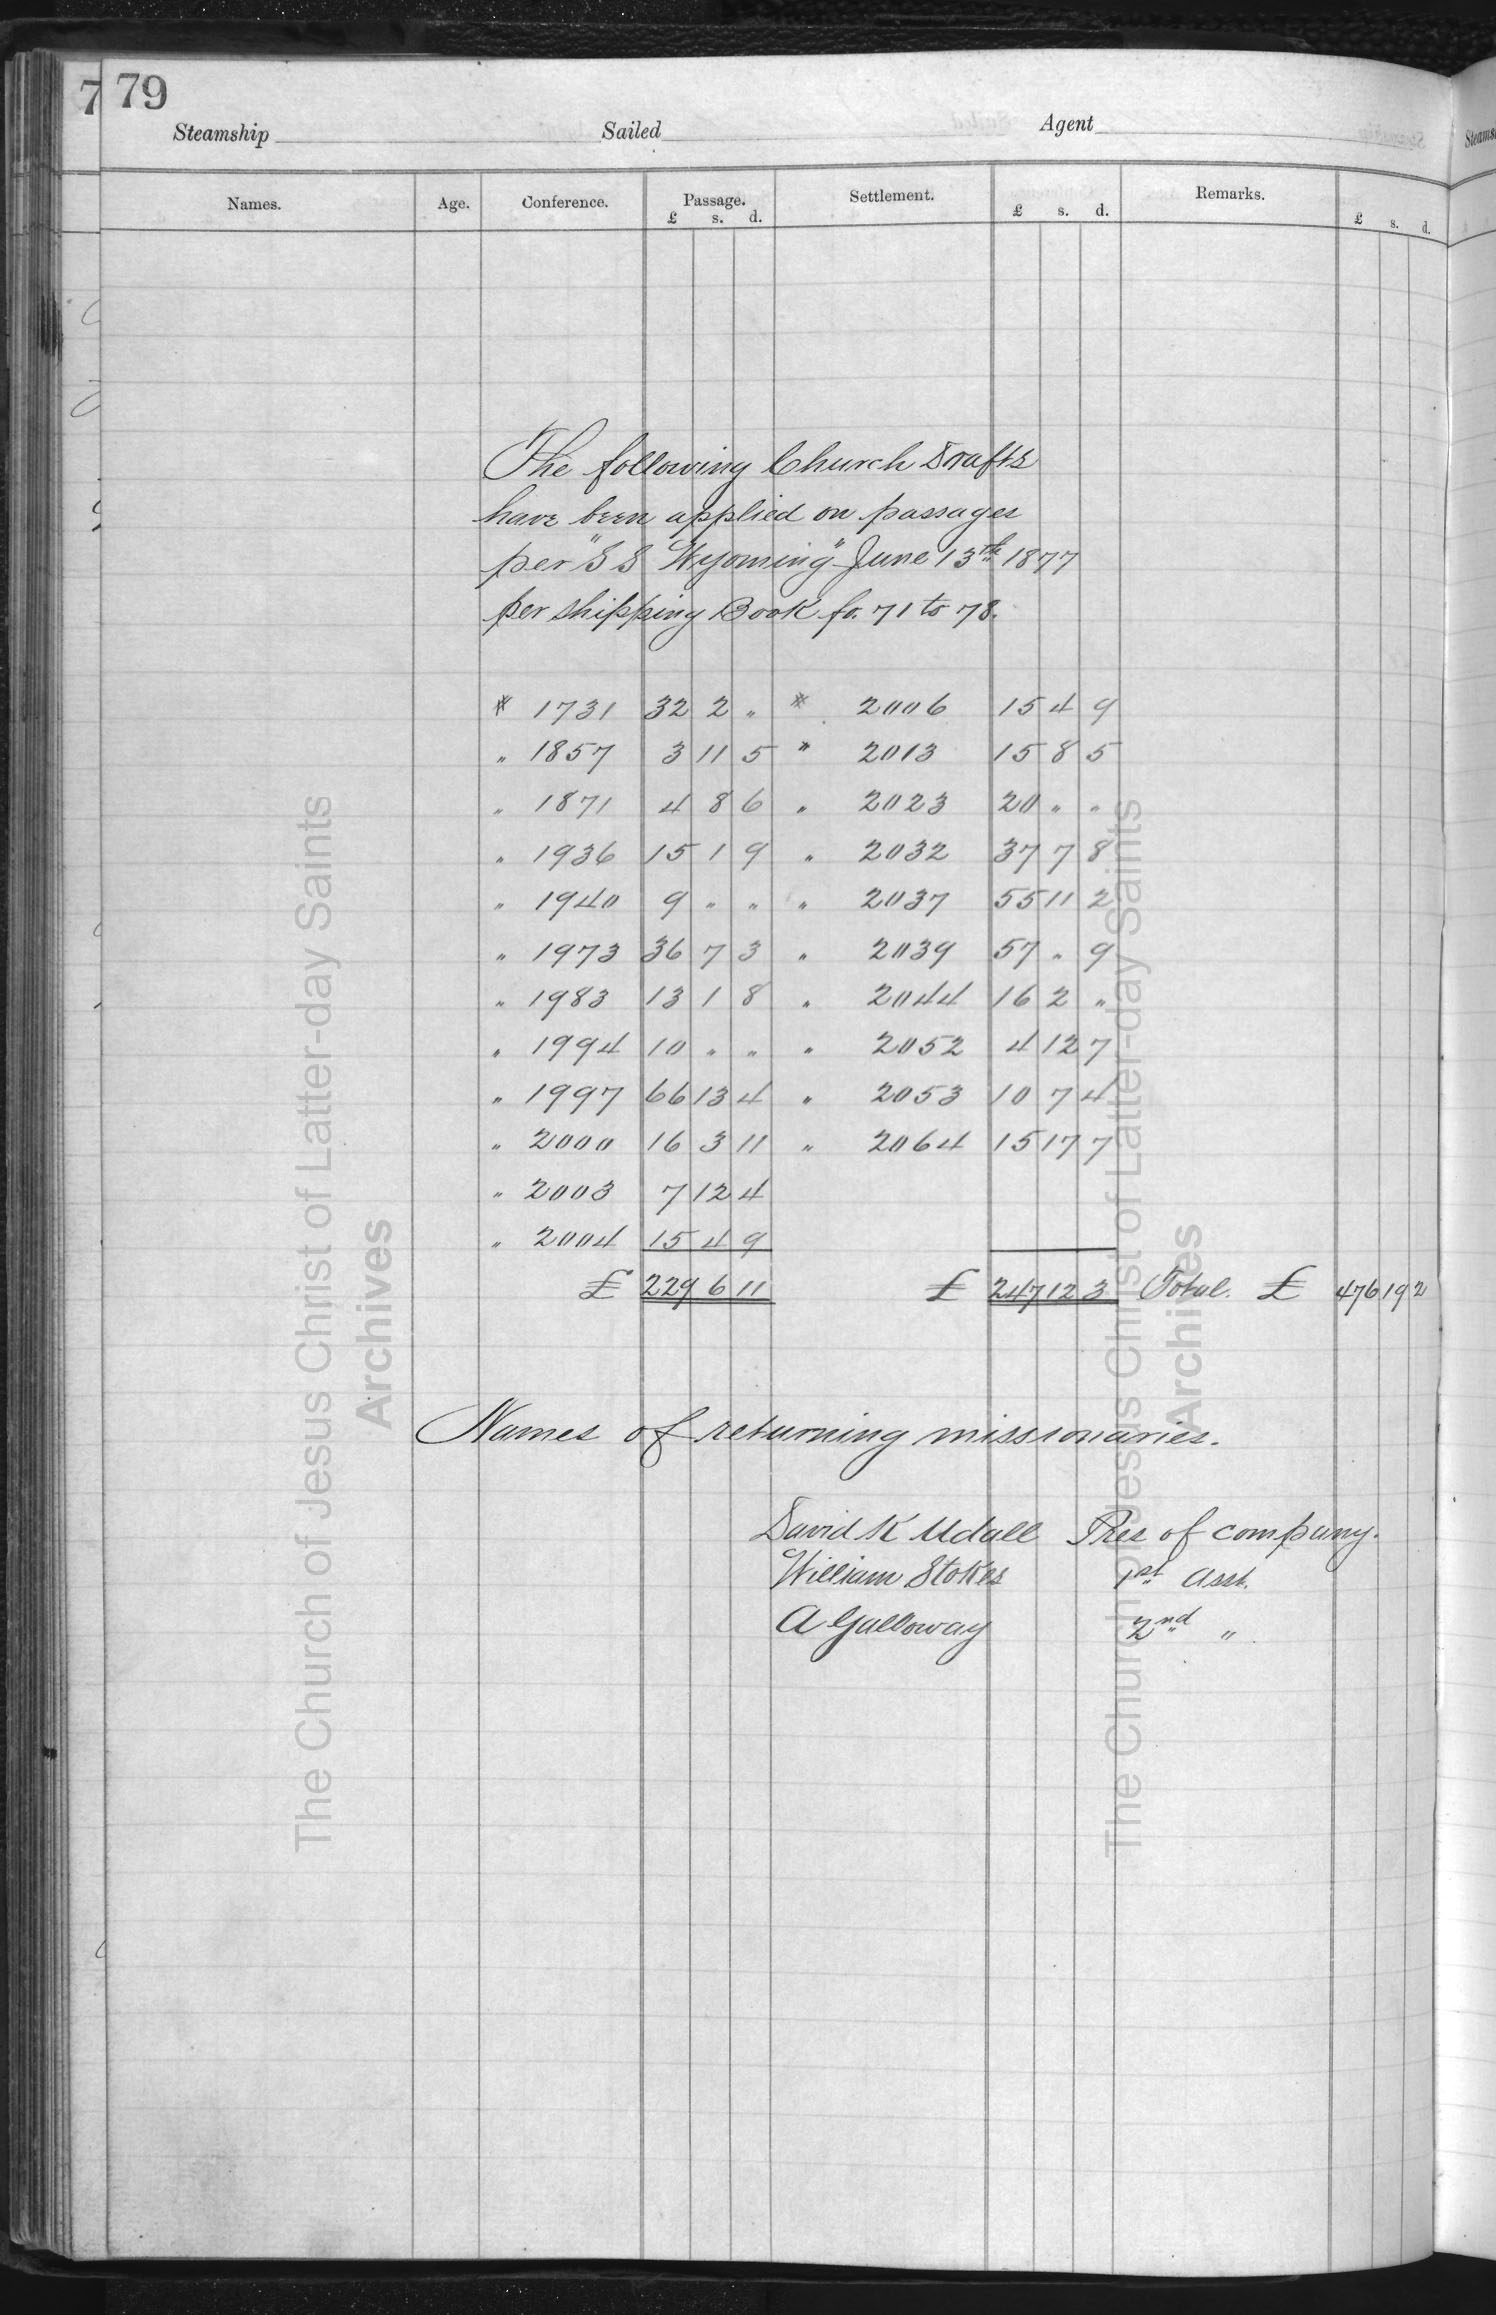 7 79
Steamship Sailed Agent
Names. Age. Conference. Passage. Settlement. Remarks.
£ s. d. £ s. d. £ s. d.
The following Church Drafts
have been applied on passages
per "SS Wyoming" June 13th 1877
per Shipping Book fo. 71 to 78.
# 1731 32 2 " # 2006 15 4 9
" 1857 3 11 5 " 2013 15 8 5
" 1871 4 8 6 " 2023 20 " "
" 1936 15 1 9 " 2032 37 7 8
" 1940 9 " " " 2037 55 11 2
" 1973 36 7 3 " 2039 57 " 9
" 1983 13 1 8 " 2044 16 2 "
" 1994 10 " " " 2052 4 12 7
" 1997 66 13 4 " 2053 10 7 4
" 2000 16 3 11 " 2064 15 17 7
" 2003 7 12 4
" 2004 15 4 9
£ 229 6 11 £ 247 12 3 Total. £ 476 19 2
Names of returning missionaries.
David K Udall Pres of company.
William Stokes 1st Asst.
A Galloway 2nd "
The Church of Jesus Christ of Latter-day Saints
Archives
The Church of Jesus Christ of Latter-day Saints
Archives